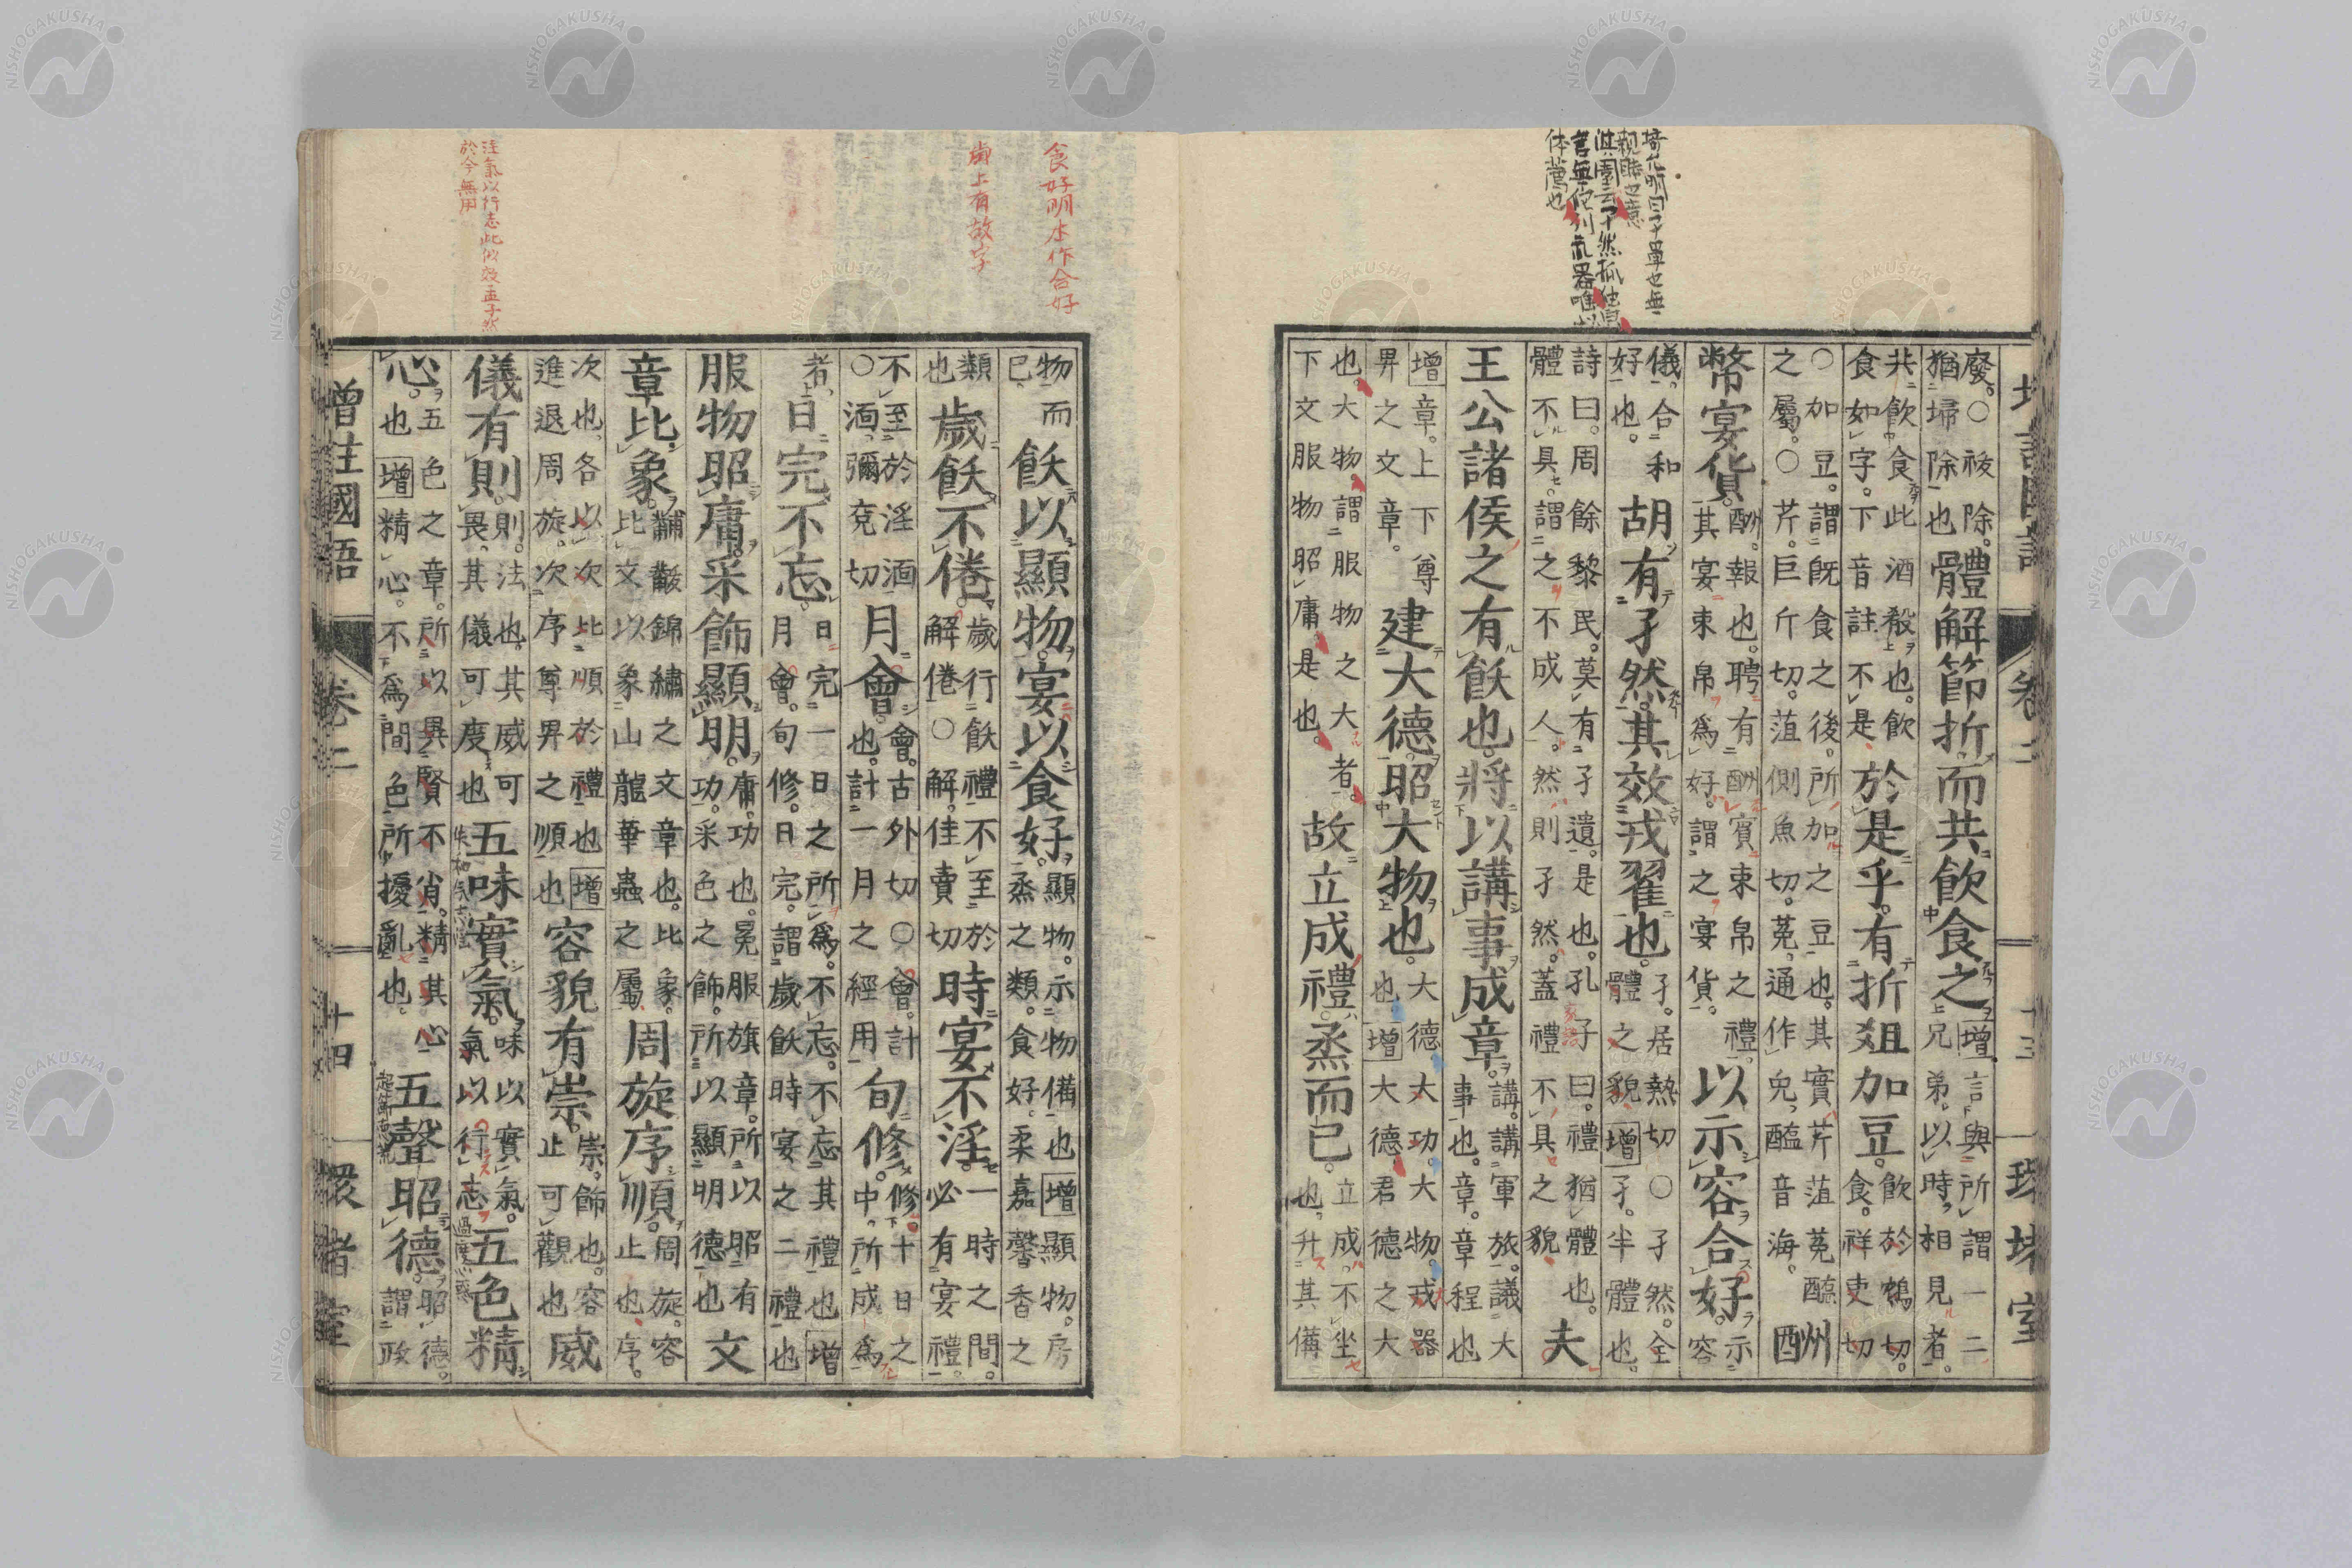 埼允明曰孑單也無
親暱也意
淇園云孑然孤独皃
言無佗列苽器唯以
体薦也
廢。○祓除。
猶埽除也
體解節折而共飲食之
增言與所謂一二
兄弟。以時相見者。
共飲食此酒殽也。飲
食如字。下音註不是
於是乎。有折俎加豆。
飲於鴆切。
食。祥吏切
○加豆。謂旣食之後。所加之豆也。其實芹菹菟醢
之屬。○芹。巨斤切。菹側魚切。菟。通作兔。醢音海。
酬
幣宴貨。
酬。報也。聘有酬賓束帛之禮。
其宴束帛爲好。謂之宴貨。
以示容合好。
示
容
儀。合和
好也。
胡有孑然。其效戎翟也。
孑。居熱切○孑然。全
體之貌增孑。半體也。
詩曰。周餘黎民。莫有孑遺。是也。孔子曰。禮猶體也。
體不具。謂之不成人。然則孑然。蓋禮不具之貌
夫
王公諸侯之有飫也。將以講事成章。
講。講軍旅。議大
事也。章。章程也
增章。上下尊
昇之文章。
建大德。昭大物也。
大德大功。大物。戎器
也增大德。君德之大
也。大物。謂服物之大者。
下文服物昭庸。是也。
故立成禮。烝而已。
立成。不坐
也。升其備
增註國語 卷二 十三
食好明本作合好
歯上有故字
注氣以行志此似
於今無用
物而
已
飫以顯物。宴以食好。
顯物。示物備也增顯物。房
烝之類。食好。柔嘉馨香之
類
也
歲飫不倦。
歲行飫禮。不至於
解倦○解。佳賣切
時宴不淫。
一時之間。
必有宴禮。
不至於淫湎
○湎。彌兗切
月會。
會。古外切○會。計
也。計一月之經用
旬修。
修十日之
中。所成爲
者
日完不忘。
日完一日之所爲。不忘。不忘其禮也增
月會。旬修。日完。謂歲飫時宴之二禮也
服物昭庸。采飾顯明。
庸。功也。冕服旗章。所以昭有
功。采色之飾。所以顯明德也
文
章比象。
黼黻錦繡之文章也。比象。
比文以象山龍華蟲之屬
周旋序順。
周旋。容
止也。序。
次也。各以次比順於禮也增
進退周旋。次序尊昇之順也
容貌有崇。
崇。飾也。容
止可觀也
威
儀有則。
則。法也。其威可
畏。其儀可度也
五味實氣。
味以實氣。
氣以行志
五色精
心。
五色之章。所以異賢不肖。精其心
也增精心。不爲間色所擾亂也。
五聲昭德。
昭德。
謂政
增註國語 卷二 十四